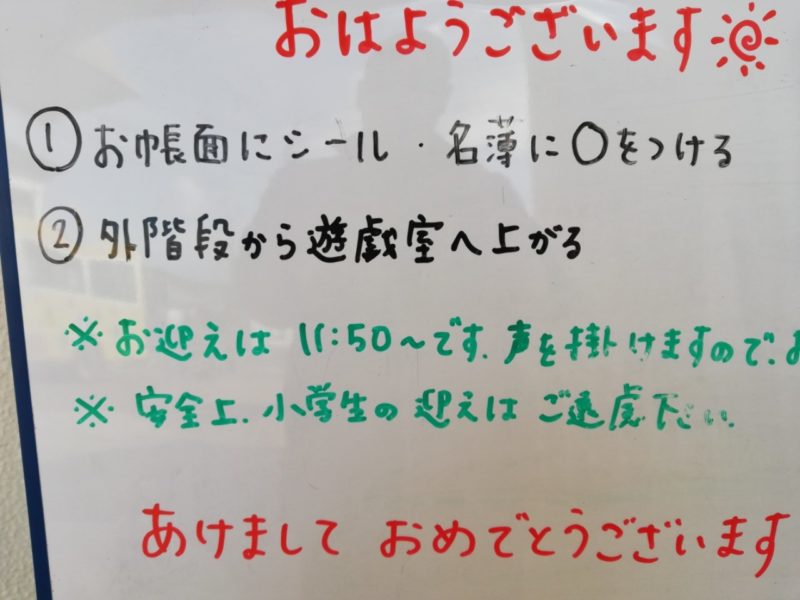 おはようございます
① お帳面にシール・名薄に〇をつける
② 外階段から遊戯室へ上がる
※ お迎えは 11:50～です. 声を掛けますので、お
※ 安全上. 小学生の 迎えは ご遠慮下さい.
あけまして おめでとうございます